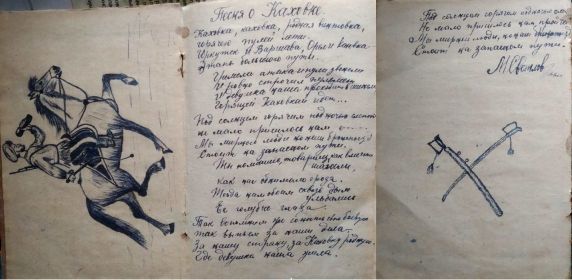 Песня о Каховке.
Каховка, каховка, родная винтовка,
Горячею пулей лети.
Иркутск и Варшава, Орёл и каховка
Этапы большого пути.
Гремела атака и пули звенели
И ровно строчил пулемёт
И девушка наша проходит в шинели
Горящей Каховкой идёт...
Под солнцем горячим под ночью слепой
не мало пришлось нам
Мы мирные люди но наш бронепоезд
Стоит на запасном пути.
Ты помнишь товарищ как вместе
сражались
Как нас обнимала гроза
Тогда нам обоим сквозь дым
улыбались
Её голубые глаза
Так вспомним же
Так выпьем за наши дела
За нашу страну, за Каховку родную
Где девушка наша жила.
Под солнцем горячим
Не мало пришлось нам пройти
Мы мирные люди, но наш
Стоит на запасном пути.
М. Светлов